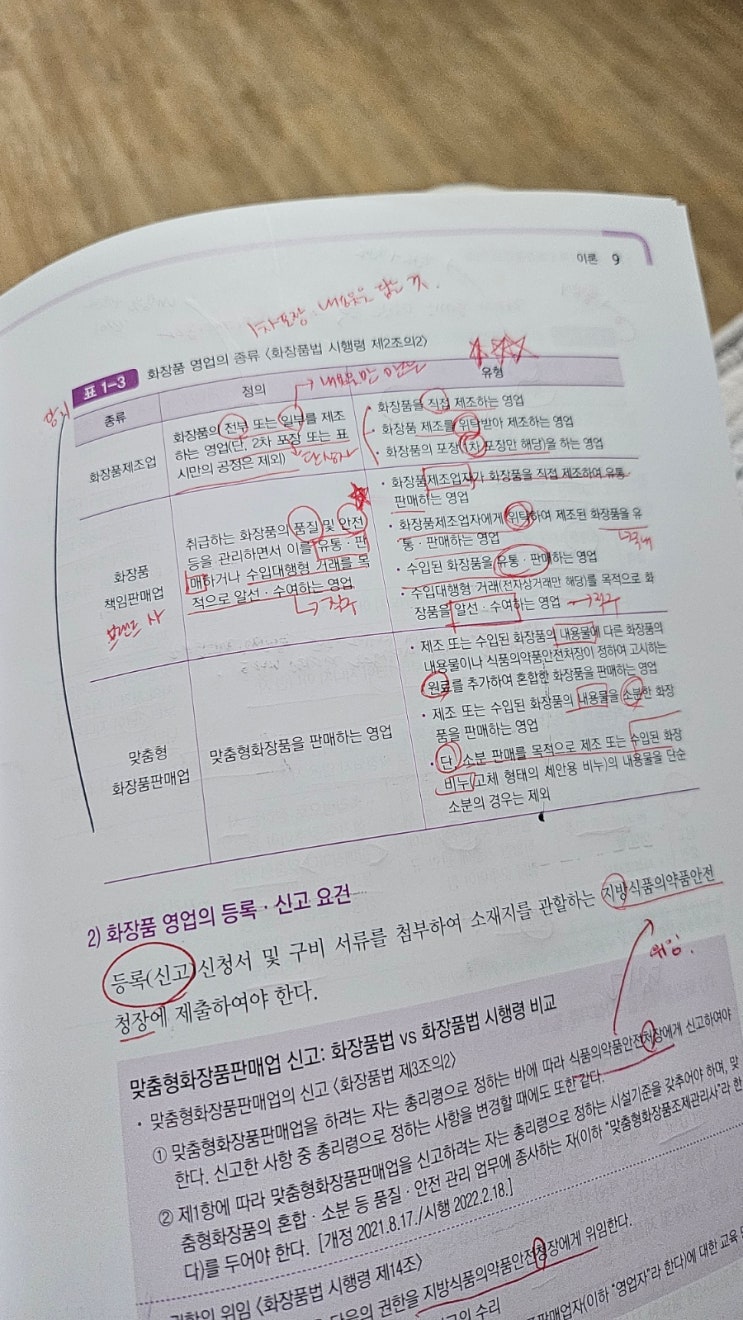 이론 9
1차포장 내용물을 담는 것.
표 1-3 화장품 영업의 종류 〈화장품법 시행령 제2조의2〉
종류
정의
유형
화장품제조업
화장품의 전부 또는 일부를 제조
하는 영업(단, 2차 포장 또는 표
시만의 공정은 제외)
• 화장품을 직접 제조하는 영업
• 화장품 제조를 위탁받아 제조하는 영업
• 화장품의 포장(1차 포장만 해당)을 하는 영업
화장품
책임판매업
브랜드 사
취급하는 화장품의 품질 및 안전
등을 관리하면서 이를 유통·판
매하거나 수입대행형 거래를 목
적으로 알선·수여하는 영업
→ 직구
• 화장품제조업자가 화장품을 직접 제조하여 유통·
판매하는 영업
• 화장품제조업자에게 위탁하여 제조된 화장품을 유
통·판매하는 영업
• 수입된 화장품을 유통·판매하는 영업
• 수입대행형 거래(전자상거래만 해당)를 목적으로 화
장품을 알선·수여하는 영업 → 직구
맞춤형
화장품판매업
맞춤형화장품을 판매하는 영업
• 제조 또는 수입된 화장품의 내용물에 다른 화장품의
내용물이나 식품의약품안전처장이 정하여 고시하는
원료를 추가하여 혼합한 화장품을 판매하는 영업
• 제조 또는 수입된 화장품의 내용물을 소분한 화장
품을 판매하는 영업
• 단, 소분 판매를 목적으로 제조 또는 수입된 화장
비누(고체 형태의 세안용 비누)의 내용물을 단순
소분의 경우는 제외
2) 화장품 영업의 등록·신고 요건
등록(신고)신청서 및 구비 서류를 첨부하여 소재지를 관할하는 지방식품의약품안전
청장에 제출하여야 한다.
위임.
맞춤형화장품판매업 신고: 화장품법 vs 화장품법 시행령 비교
• 맞춤형화장품판매업의 신고 〈화장품법 제3조의2〉
① 맞춤형화장품판매업을 하려는 자는 총리령으로 정하는 바에 따라 식품의약품안전처장에게 신고하여야
한다. 신고한 사항 중 총리령으로 정하는 사항을 변경할 때에도 또한 같다.
② 제1항에 따라 맞춤형화장품판매업을 신고하려는 자는 총리령으로 정하는 시설기준을 갖추어야 하며, 맞
춤형화장품의 혼합·소분 등 품질·안전 관리 업무에 종사하는 자(이하 "맞춤형화장품조제관리사"라 한
다)를 두어야 한다. [개정 2021.8.17./시행 2022.2.18.]
권한의 위임 〈화장품법 시행령 제14조〉
다음의 권한을 지방식품의약품안전청장에게 위임한다.
수리
판매업자(이하 "영업자"라 한다)에 대한 교육